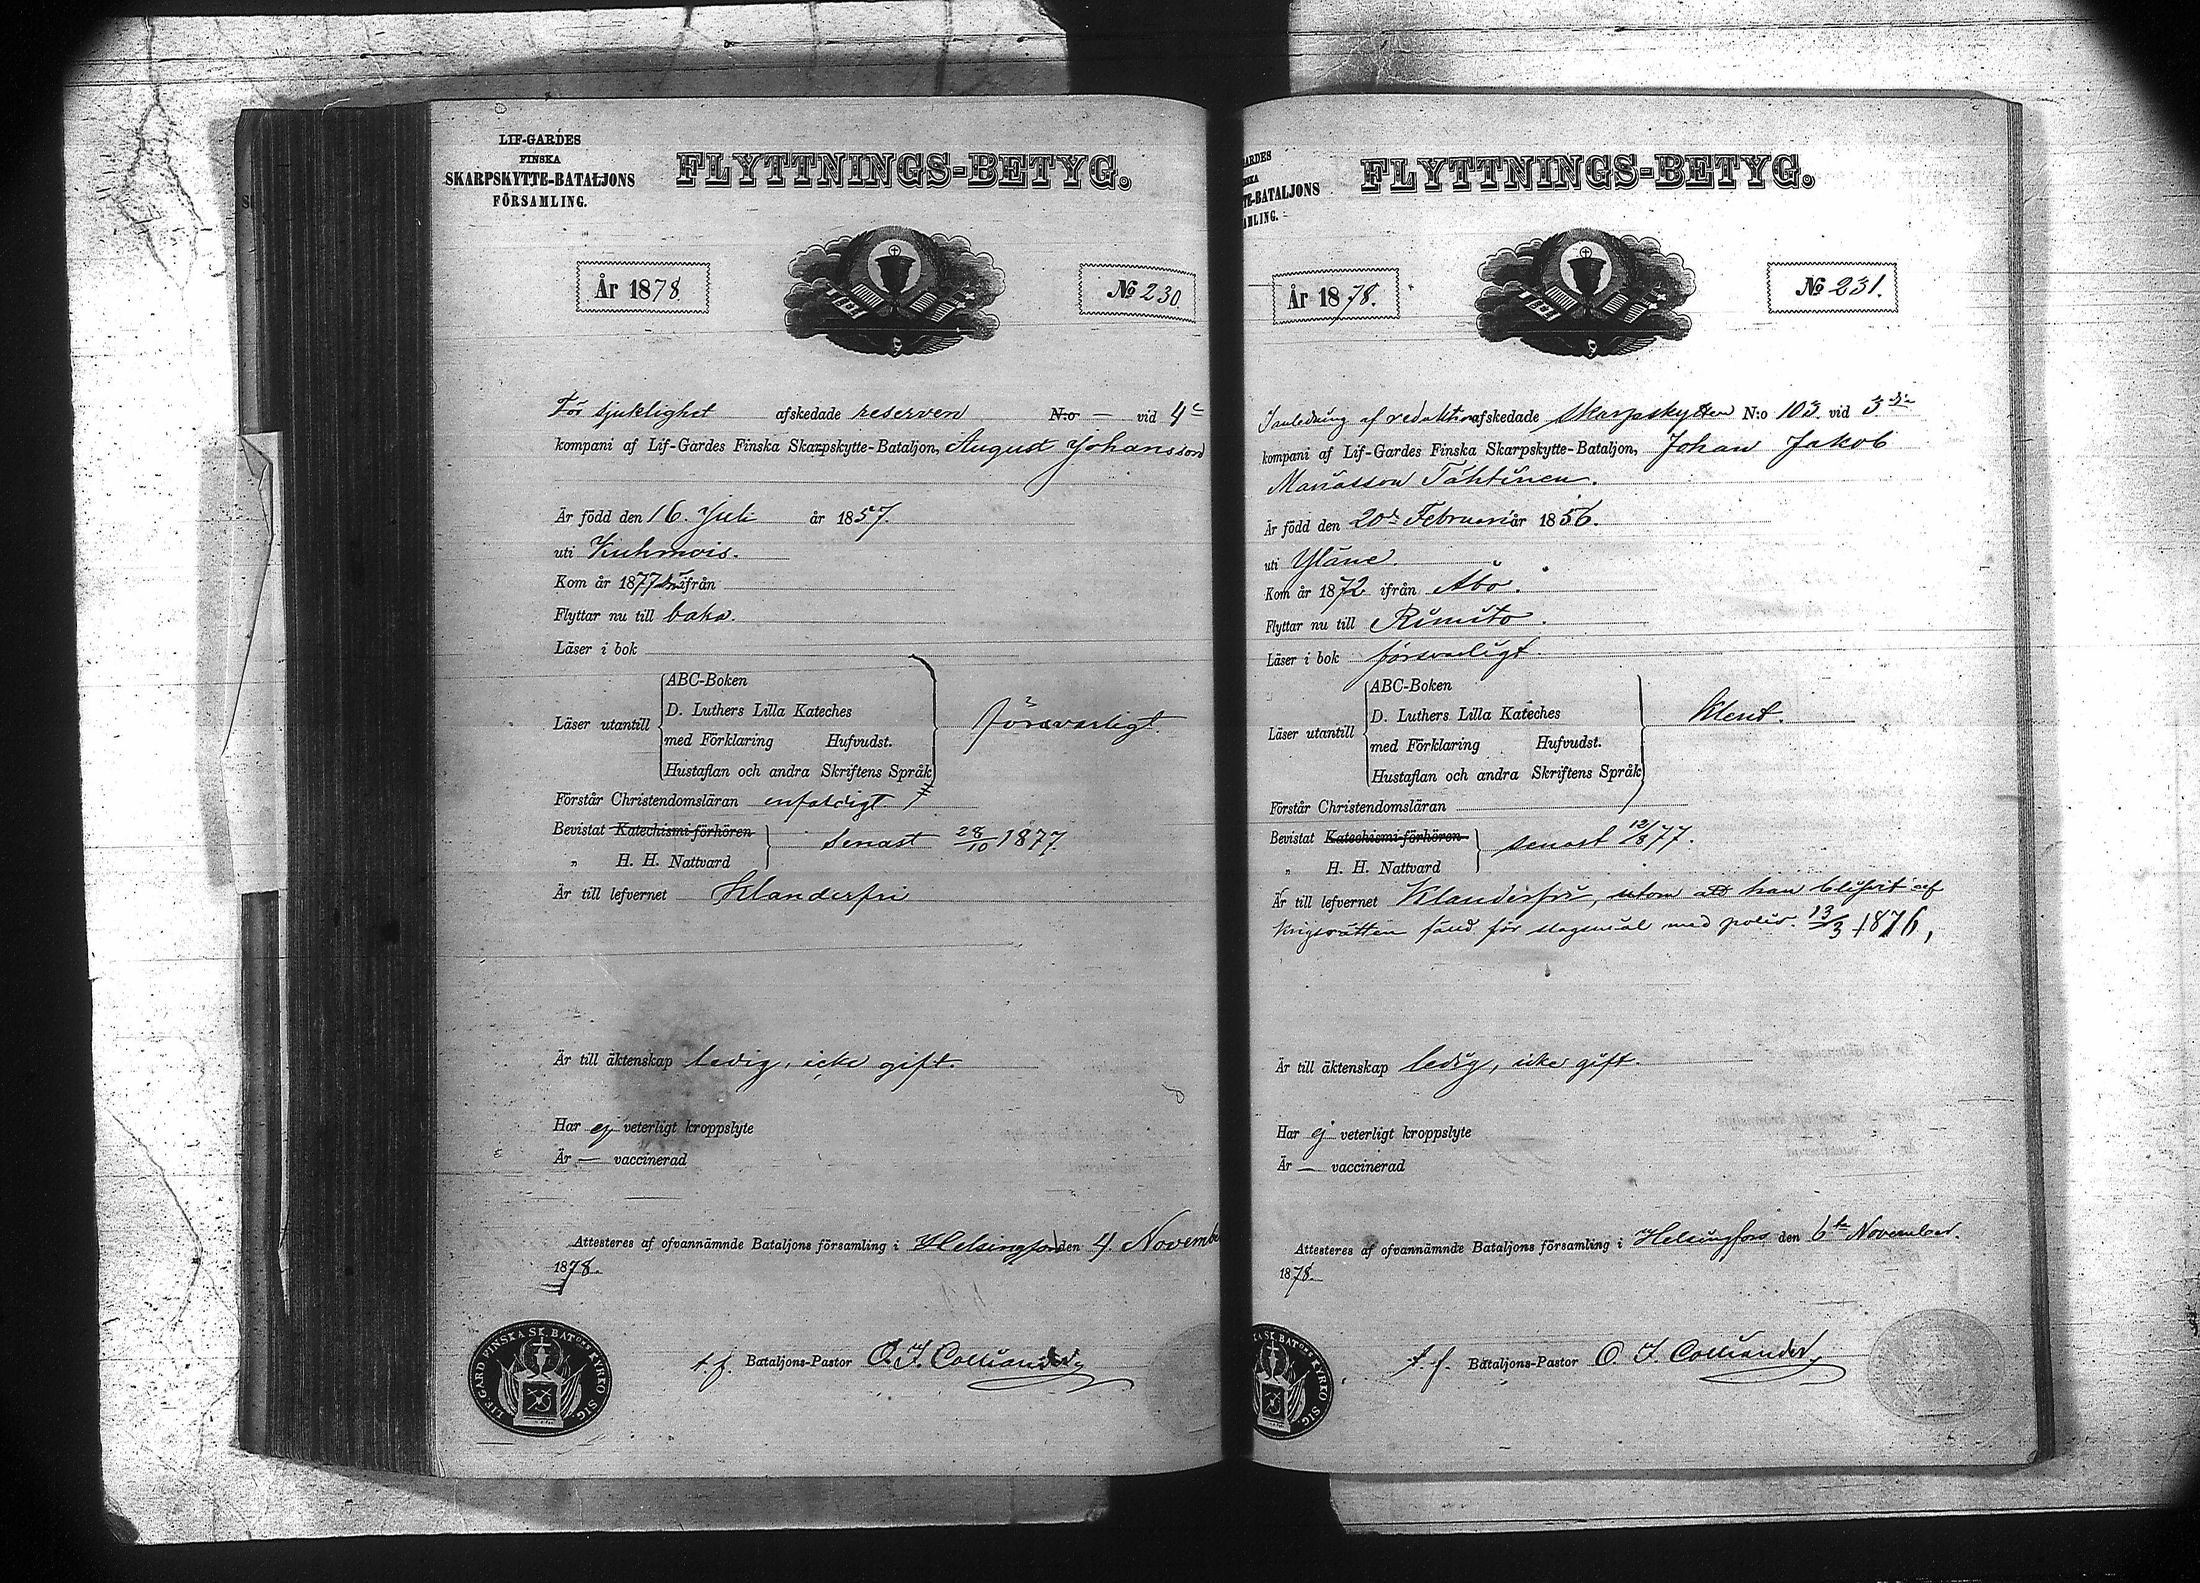 LIF-GARDES
FINSKA
SKARPSKYTTE-BATALJONS
FÖRSAMLING.
FLYTTNINGS-BETYG.
År 1878
No 230
För sjuklighet afskedade reserven N:o — vid 4e
kompani af Lif-Gardes Finska Skarpskytte-Bataljon, August Johansson
Är född den 16. Juli år 1857.
uti Kuhmois.
Kom år 1877 ifrån
Flyttar nu till baka.
Läser i bok
Läser utantill
ABC-Boken
D. Luthers Lilla Kateches
med Förklaring Hufvudst.
Hustaflan och andra Skriftens Språk
försvarligt.
Förstår Christendomsläran enfaldigt
Bevistat Katechismi-förhören
„ H. H. Nattvard
senast 28/10 1877.
Är till lefvernet Klanderfri
Är till äktenskap ledig, icke gift.
Har ej veterligt kroppslyte
Är — vaccinerad
Attesteres af ofvannämnde Bataljons församling i Helsingfors den 4. Novembe
1878.
t.f. Bataljons-Pastor O. I. Colliander
LIF-GARD FINSKA SK. BATONS KYRKO SIG.
GARDES
TE-BATALJONS
AMLING.
FLYTTNINGS-BETYG.
År 1878.
No 231.
I anledning af afskedade Skarpskytten N:o 103 vid 3dje
kompani af Lif-Gardes Finska Skarpskytte-Bataljon, Johan Jakob
Manasson Tähtinen.
Är född den 20de Februari år 1856.
uti Yläne.
Kom år 1872 ifrån Åbo.
Flyttar nu till Rimito.
Läser i bok försvarligt.
Läser utantill
ABC-Boken
D. Luthers Lilla Kateches
med Förklaring Hufvudst.
Hustaflan och andra Skriftens Språk
klent.
Förstår Christendomsläran
Bevistat Katechismi-förhören
„ H. H. Nattvard
senast 12/8 77.
Är till lefvernet Klanderfri, utom att han blifvit af
krigsrätten fäld för slagsmål med polis. 13/3 1876,
Är till äktenskap ledig, icke gift.
Har ej veterligt kroppslyte
Är — vaccinerad
Attesteres af ofvannämnde Bataljons församling i Helsingfors den 6te November.
1878.
t. f. Bataljons-Pastor O. I. Colliander
SK. BATONS KYRKO SIG.